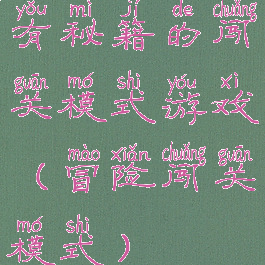 yǒu mì jí de chuǎng
有秘籍的闯
guān mó shì yóu xì
关模式游戏
mào xiǎn chuǎng guān
(冒险闯关
mó shì
模式)